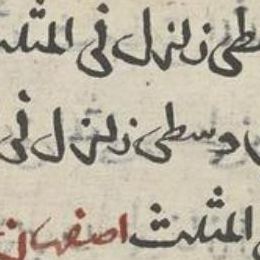 وسطى زلزل في المثلث
وسطى زلزل في
المثلث اصفهان